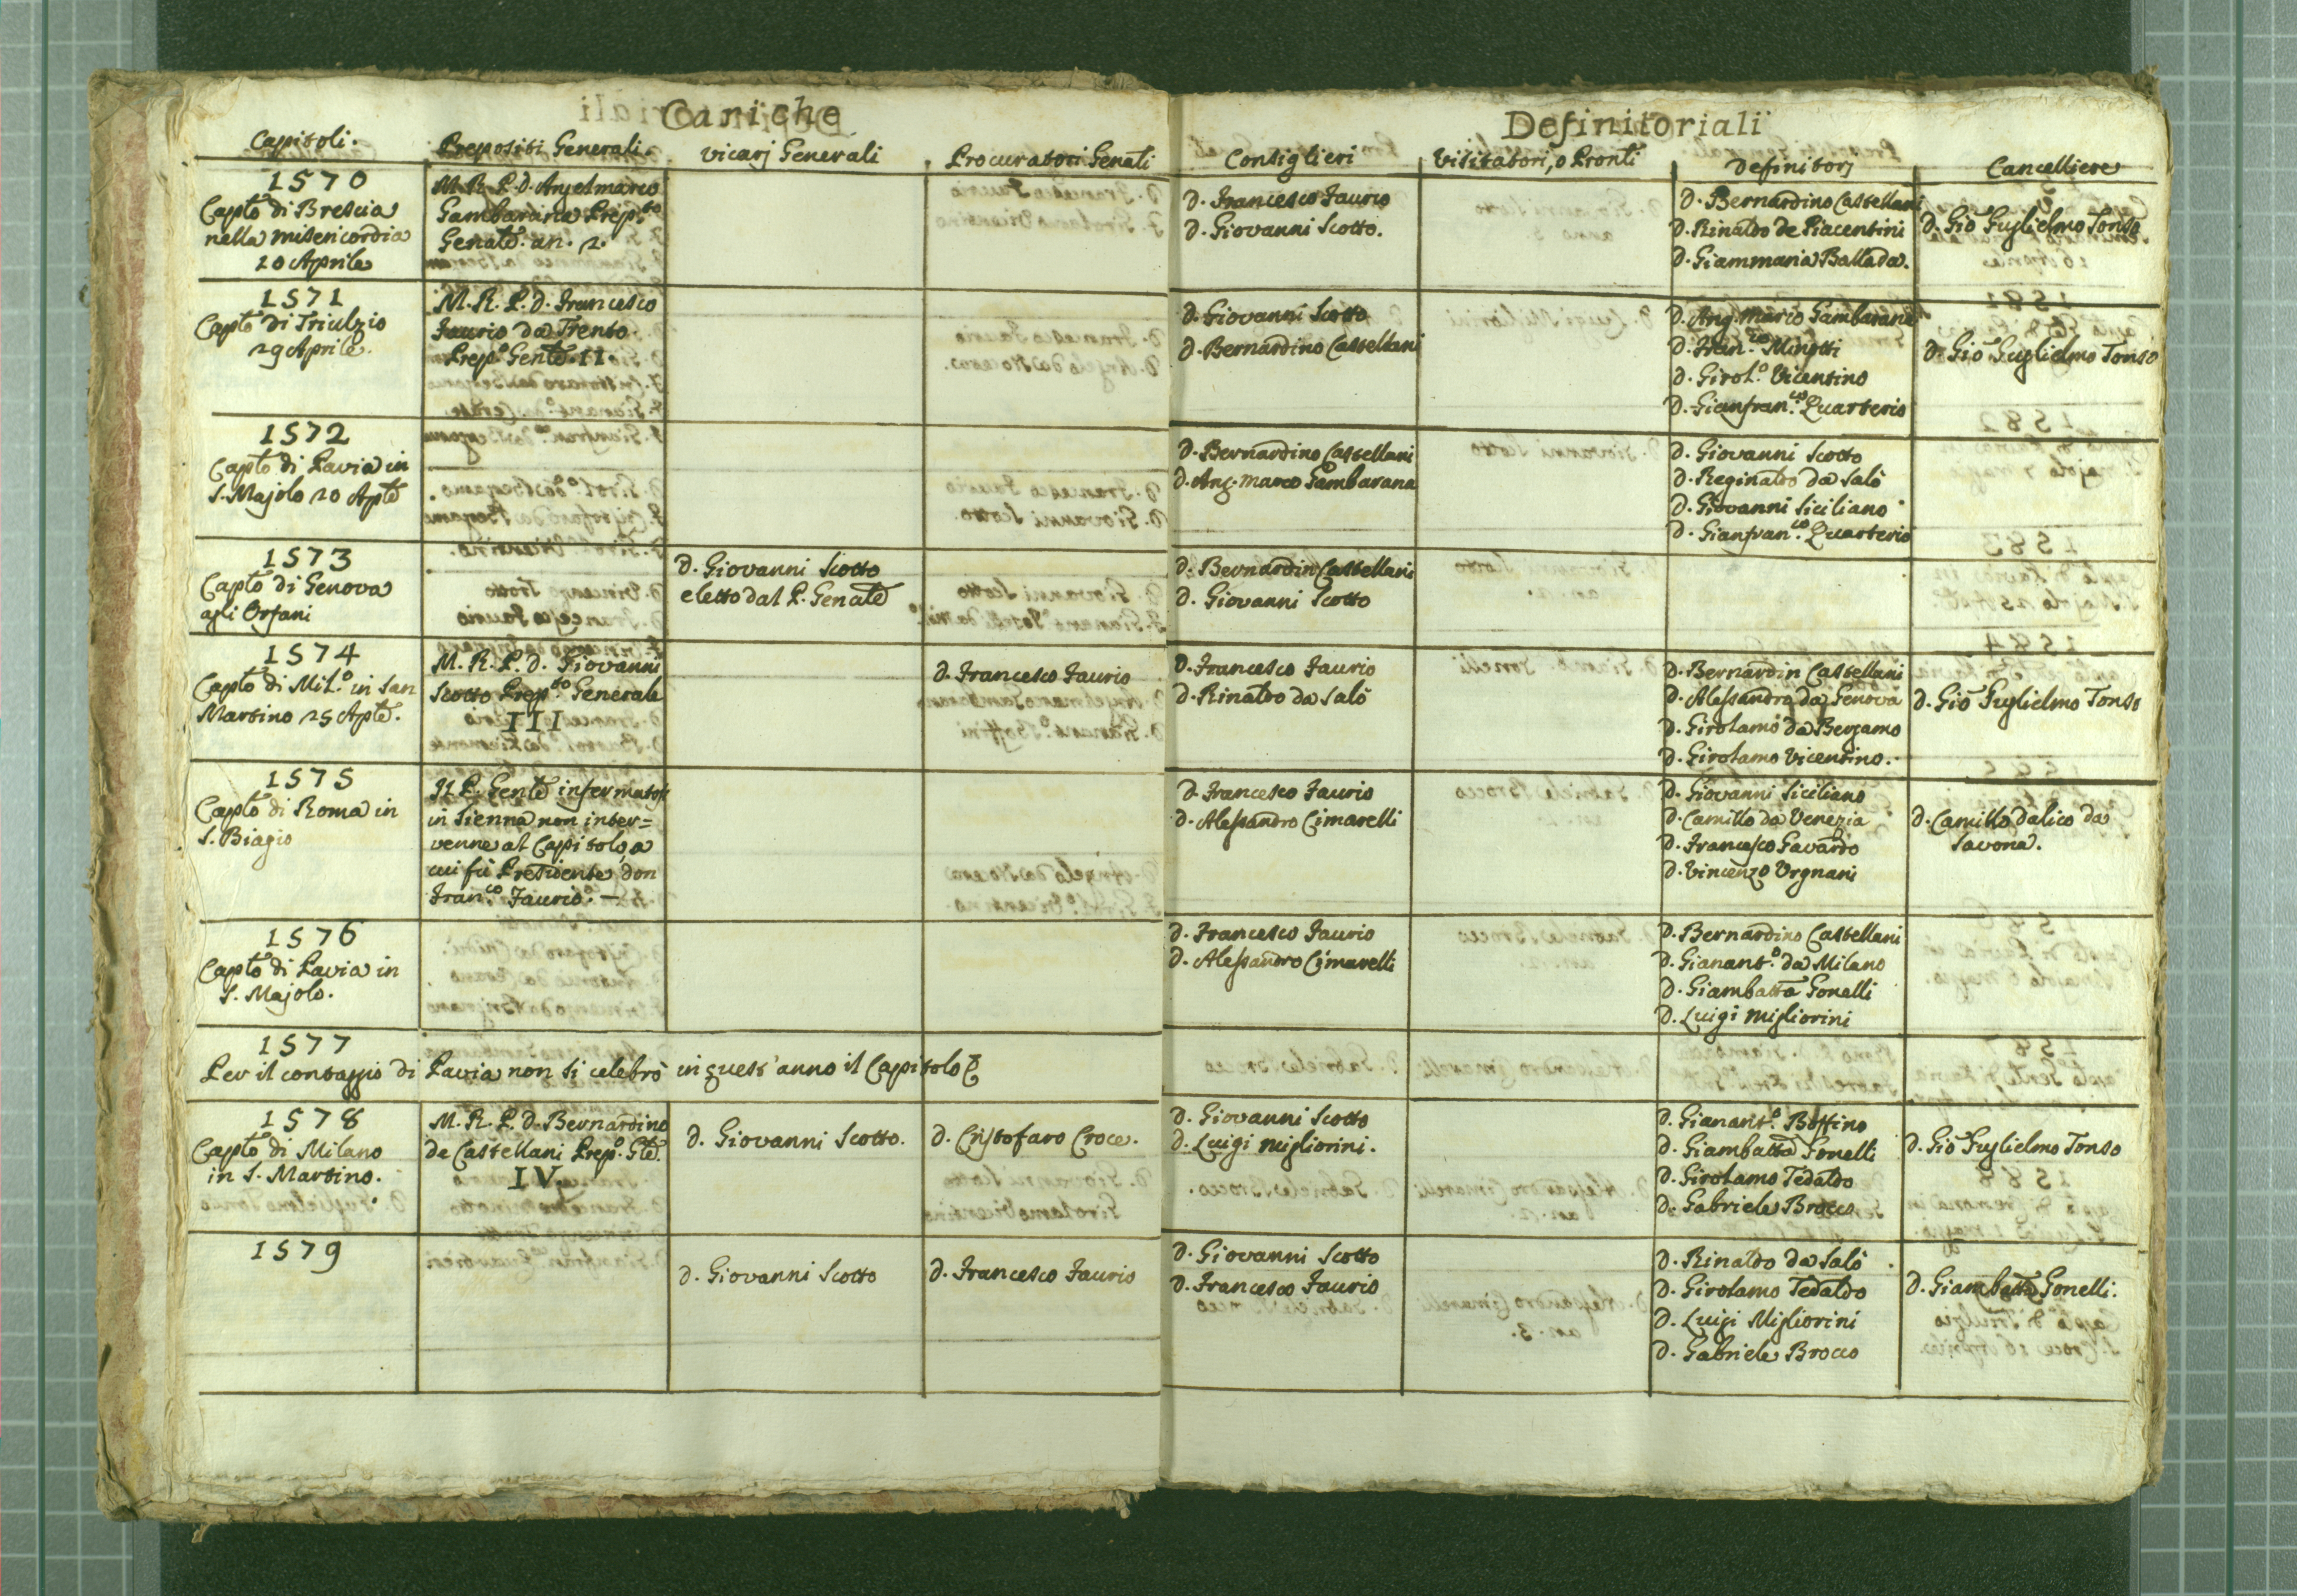 Cariche
Definitoriali
Capitoli.
Prepositi Generali.
Vicarj Generali
Procuratori Genāli
Consiglieri
Visitatori, o Pronti
Definitorj
Cancelliere
1570
Captō di Brescia
nella misericordia
20 Aprile
M. R. P. d. Angelmarco
Gambarana Prep.to
Genalē. an. 2.
d. Francesco Faurio
d. Giovanni Scotto.
d. Bernardino Castellani
d. Rinaldo de Piacentini
d. Giammaria Ballada.
d. Giō Guglielmo Tonso
1571
Captō di Triulzio
29 Aprile.
M. R. P. d. Francesco
Faurio da Trento.
Prep.o Genlē. II
d. Giovanni Scotto
d. Bernardino Castellani
d. Ang. Marco Gambarana
d. Fran.co Minotti
d. Girol.o Vicentino
d. Gianfran.co Quarterio
d. Giō Guglielmo Tonso
1572
Captō di Pavia in
S. Majolo 20 Aplē
d. Bernardino Castellani
d. Ang. marco Gambarana
d. Giovanni Scotto
d. Reginaldo da Salò
d. Giovanni Siciliano
d. Gianfran.co Quarterio
1573
Captō di Genova
agli Orfani
d. Giovanni Scotto
eletto dal P. Genalē
d. Bernardin Castellani
d. Giovanni Scotto
1574
Captō di Mil.o in San
Martino 25 Aplē.
M. R. P. d. Giovanni
Scotto Prep.to Generale
III
d. Francesco Faurio
d. Francesco Faurio
d. Rinaldo da Salò
d. Bernardin Castellani
d. Alessandro da Genova
d. Girolamo da Bergamo
d. Girolamo Vicentino.
d. Giō Guglielmo Tonso
1575
Captō di Roma in
S. Biagio
Il P. Genlē infermatosi
in Sienna non inter=
venne al Capitolo, a
cui fù Presidente don
Fran.co Faurio. —
d. Francesco Faurio
d. Alessandro Cimarelli
d. Giovanni Siciliano
d. Camillo da Venezia
d. Francesco Gavardo
d. Vincenzo Urgnani
d. Camillo dalico da
Savona.
1576
Captō di Pavia in
S. Majolo.
d. Francesco Faurio
d. Alessandro Cimarelli
d. Bernardino Castellani
d. Gianant.o da Milano
d. Giambattā Gonelli
d. Luigi Migliorini
1577
Per il contaggio di Pavia non si celebrò in quest'anno il Capitolo
1578
Captō di Milano
in S. Martino.
M. R. P. d. Bernardino
de Castellani Prep.o Glē.
IV.
d. Giovanni Scotto.
d. Cristofaro Croce.
d. Giovanni Scotto
d. Luigi Migliorini.
d. Gianant.o Boffino
d. Giambattā Gonelli
d. Girolamo Tedaldo
d. Gabriele Brocco
d. Giō Guglielmo Tonso
1579
d. Giovanni Scotto
d. Francesco Faurio
d. Giovanni Scotto
d. Francesco Faurio
d. Rinaldo da Salò
d. Girolamo Tedaldo
d. Luigi Migliorini
d. Gabriele Brocco
d. Giambattā Gonelli.